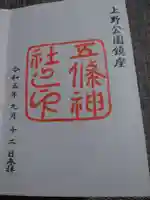 上野公園鎮座
五條神
社之印
令和五年九月十二日参拝